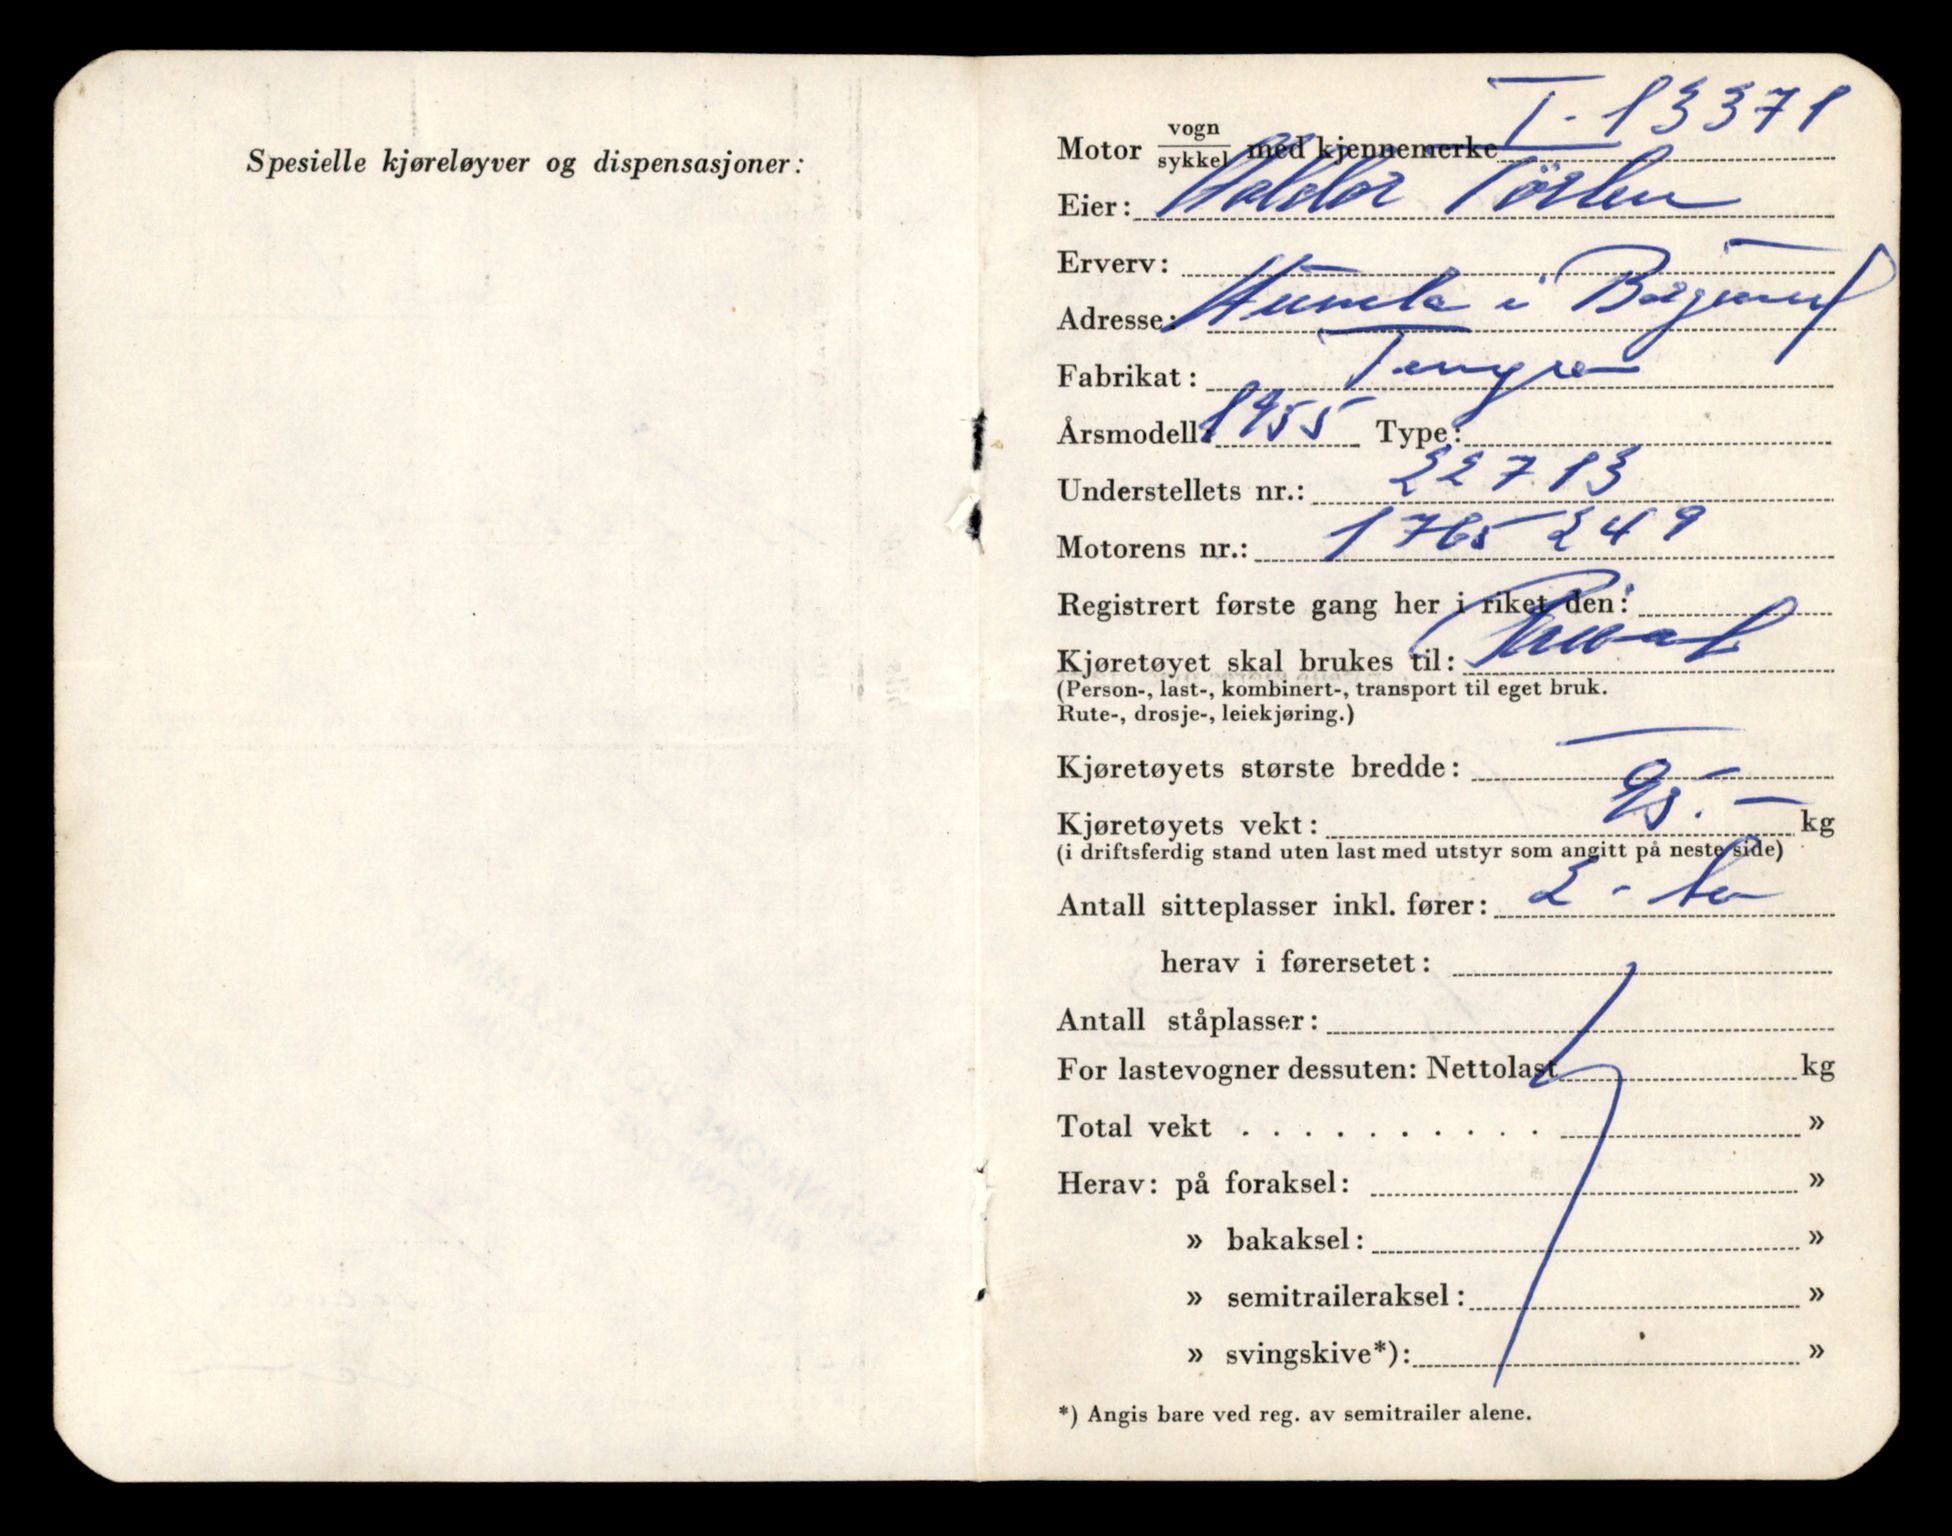 Spesielle kjøreløyver og dispensasjoner:
Motor vogn/sykkel med kjennemerke T-13371
Eier: Halldor
Erverv:
Adresse: i
Fabrikat:
Årsmodell: 1955 Type:
Understellets nr.: 22713
Motorens nr.: 1765249
Registrert første gang her i riket den:
Kjøretøyet skal brukes til: Privat
(Person-, last-, kombinert-, transport til eget bruk.
Rute-, drosje-, leiekjøring.)
Kjøretøyets største bredde:
Kjøretøyets vekt: 95.- kg
(i driftsferdig stand uten last med utstyr som angitt på neste side)
Antall sitteplasser inkl. fører: 2 - to
herav i førersetet:
Antall ståplasser:
For lastevogner dessuten: Nettolast kg
Total vekt . . . . . . . . . . »
Herav: på foraksel: »
» bakaksel: »
» semitraileraksel: »
» svingskive*): »
*) Angis bare ved reg. av semitrailer alene.